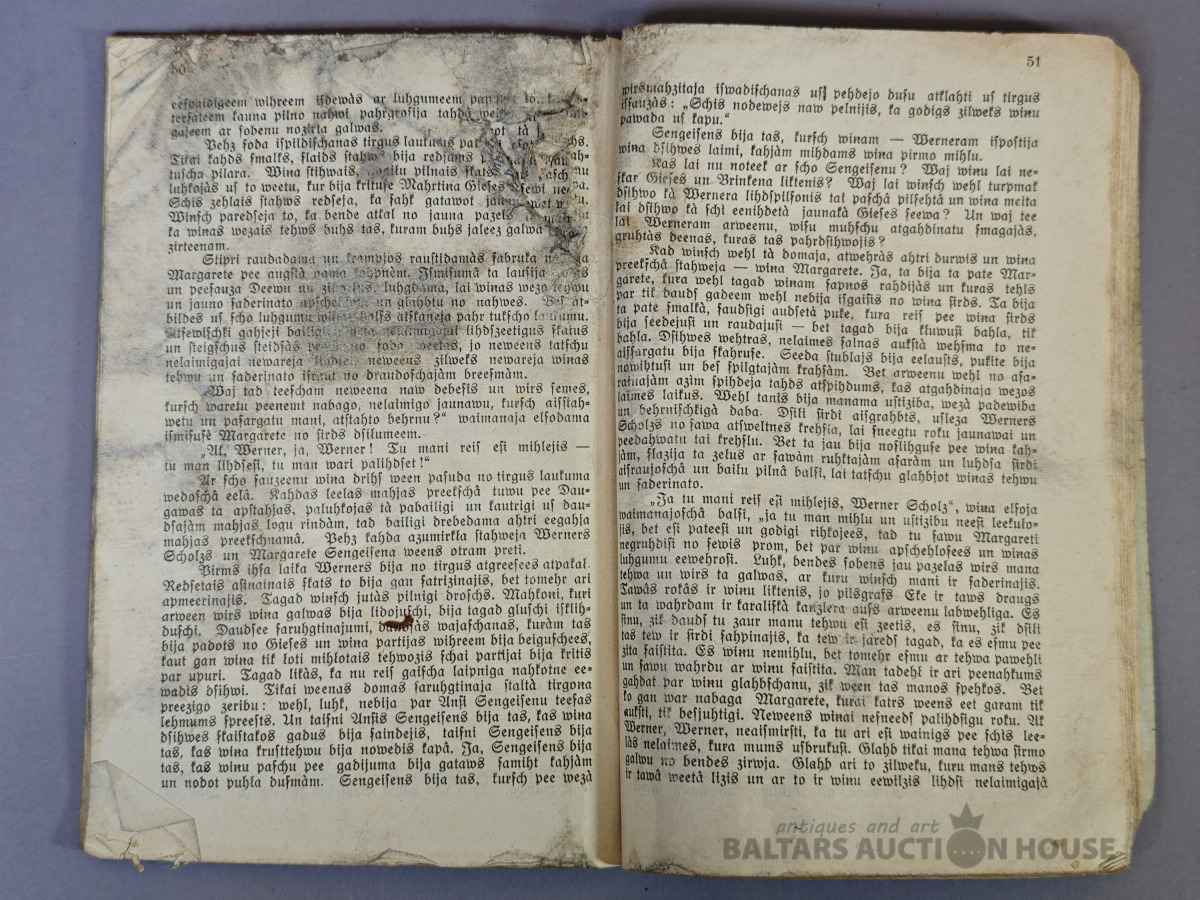 50
eefpaidigeem wihreem isdewās ar luhgumeem
teefāteem kauna pilno nahwi pahrgrosija tahdā
gaseem ar sobenu nozirta galwas.
Pehz soda ispildischanas tirgus laukums
Tikai kahds smalks, slaids stahws bija redsams
tuscha pilara. Wina stihwais, pilnais skats
luhkojās us to weetu, kur bija kritusē Mahrtina Gieses
Schis zehlais stahws redseja, ka sahk gatawot
Winsch paredseja to, ka bende atkal no jauna pazels
ka winas wezais tehws buhs tas, kuram buhs jaleez galwa
zirteenam.
Stipri raudadama un krampjos raustidamās sabruka
Margarete pee augstā nama kahpnēm. Ismisumā ta lausija
un peesauza Deewu un luhgdama, lai winas wezo tehwu
un jauno saderinato un glahbtu no nahwes. Bes at-
bildes us scho luhgumu balss atskaneja pahr tukscho laukumu.
Atsewischki gahjeji lihdszeetigus skatus
un steigschus steidsās weetas, jo neweens tatschu
nelaimigajai newareja neweens zilweks newareja winas
tehwu un saderinato israut no draudoschajām breesmām.
„Waj tad teescham neweena naw debesis un wirs semes,
kursch waretu peenemt nabago, nelaimigo jaunawu, kursch aisstah-
wetu un pasargatu mani, atstahto behrnu?“ waimanaja elsodama
ismisusē Margarete no sirds dsilumeem.
„Ak, Werner, ja, Werner! Tu mani reis esi mihlejis —
tu man lihdsesi, tu man wari palihdset!“
Ar scho sauzeenu wina drihs ween pasuda no tirgus laukuma
wedoschā eelā. Kahdas leelas mahjas preekschā tuwu pee Dau-
gawas ta apstahjas, paluhkojas tā pabailigi un kautrigi us dau-
dsajām mahjas logu rindām, tad bailigi drebedama ahtri eegahja
mahjas preekschnamā. Pehz kahda azumirkla stahweja Werners
Scholzs un Margarete Sengeisena weens otram preti.
Pirms ihsa laika Werners bija no tirgus atgreesees atpakal.
Redsetais asinainais skats to bija gan satrizinajis, bet tomehr ari
apmeerinajis. Tagad winsch jutās pilnigi droschs. Mahkoni, kuri
arween wirs wina galwas bija lidojuschi, bija tagad gluschi isklih-
duschi. Daudsee saruhgtinajumi, daudsās wajaschanas, kurām tas
bija padots no Gieses un wina partijas wihreem bija beiguschees,
kaut gan wina tik loti mihlotais tehwozis schai partijai bija kritis
par upuri. Tagad likās, ka nu reis gaischa laipniga nahkotne ee-
wadis dsihwi. Tikai weenas domas saruhgtinaja staltā tirgona
preezigo zeribu: wehl, luhk, nebija par Ansi Sengeisenu teesas
lehmums spreests. Un taisni Ansis Sengeisens bija tas, kas wina
dsihwes skaistakos gadus bija saindejis, taisni Sengeisens bija
tas, kas wina krusttehwu bija nowedis kapā. Ja, Sengeisens bija
tas, kas winu paschu pee gadijuma bija gataws samiht kahjām
un nodot puhla dusmām. Sengeisens bija tas, kursch pee wezā
51
wirsmahzitaja iswadischanas us pehdejo dusu atklahti us tirgus
issauzās: „Schis nodewejs naw pelnijis, ka godigs zilweks winu
pawada us kapu.“
Sengeisens bija tas, kursch winam — Werneram ispostija
wina dsihwes laimi, kahjām mihdams wina pirmo mihlu.
Kas lai nu noteek ar scho Sengeisenu? Waj winu lai ne-
skar Gieses un Brinkena liktenis? Waj lai winsch wehl turpmak
dsihwo kā Wernera lihdspilsonis tai paschā pilsehtā un wina meita
lai dsihwo kā schi eenihdetā jaunakā Gieses seewa? Un waj tee
lai Werneram arweenu, wisu muhschu atgahdinatu smagajās,
gruhtās deenas, kuras tas pahrdsihwojis?
Kad winsch wehl tā domaja, atwehrās ahtri durwis un wina
preekschā stahweja — wina Margarete. Ja, ta bija ta pate Mar-
garete, kura wehl tagad winam sapnos rahdijās un kuras tehls
par tik dauds gadeem wehl nebija isgaisis no wina sirds. Ta bija
ta pate smalkā, saudsigi audsetā puke, kura reis pee wina sirds
bija seedejusi un raudajusi — bet tagad bija kluwusi bahla, tik
bahla. Dsihwes wehtras, nelaimes salnas aukstā wehsma to ne-
aissargatu bija skahruse. Seeda stublajs bija eelausts, pukite bija
nowihtusi un bes spilgtajām krahsām. Bet arweenu wehl no asa-
rainajām azim spihdeja tahds atspihdums, kas atgahdinaja wezos
laimes laikus. Wehl tanīs bija manama ustiziba, wezā padewiba
un behrnischkigā daba. Dsili sirdi aisgrahbts, usleza Werners
Scholzs no sawa atsweltnes krehsla, lai sneegtu roku jaunawai un
peedahwatu tai krehslu. Bet ta jau bija noslihguse pee wina kah-
jām, slazija ta zelus ar sawām ruhktajām asarām un luhdsa sirdi
aisraujoschā un bailu pilnā balsi, lai tatschu glahbjot winas tehwu
un saderinato.
„Ja tu mani reis esi mihlejis, Werner Scholz“, wina elsoja
waimanajoschā balsi, „ja tu man mihlu un ustizibu neesi leekulo-
jis, bet esi pateesi un godigi rihkojees, tad tu sawu Margareti
negruhdisi no sewis prom, bet par winu apschehlosees un winas
luhgumu eewehrosi. Luhk, bendes sobens jau pazelas wirs mana
tehwa un wirs ta galwas, ar kuru winsch mani ir saderinajis.
Tawās rokās ir winu liktenis, jo pilsgrafs Eke ir taws draugs
un ta wahrdam ir karaliskā kanzlera auss arweenu labwehliga. Es
sinu, zik dauds tu zaur manu tehwu esi zeetis, es sinu, zik dsili
tas tew ir sirdi sahpinajis, ka tew ir jāreds tagad, ka es esmu pee
zita saistita. Es winu nemihlu, bet tomehr esmu ar tehwa pawehli
un sawu wahrdu ar winu saistita. Man tadehl ir ari peenahkums
gahdat par winu glahbschanu, zik ween tas manos spehkos. Bet
ko gan war nabaga Margarete, kurai katrs weens eet garam tik
auksti, tik besjuhtigi. Neweens winai nesneeds palihdsigu roku. Ak
Werner, Werner, neaismirsti, ka tu ari esi wainigs pee schis lee-
lās nelaimes, kura mums usbrukusi. Glahb tikai mana tehwa sirmo
galwu no bendes zirwja. Glahb ari to zilweku, kuru mans tehws
ir tawā weetā lizis un ar to ir winu eewilzis lihdsi nelaimigajā
antiques and art
BALTARS AUCTION HOUSE